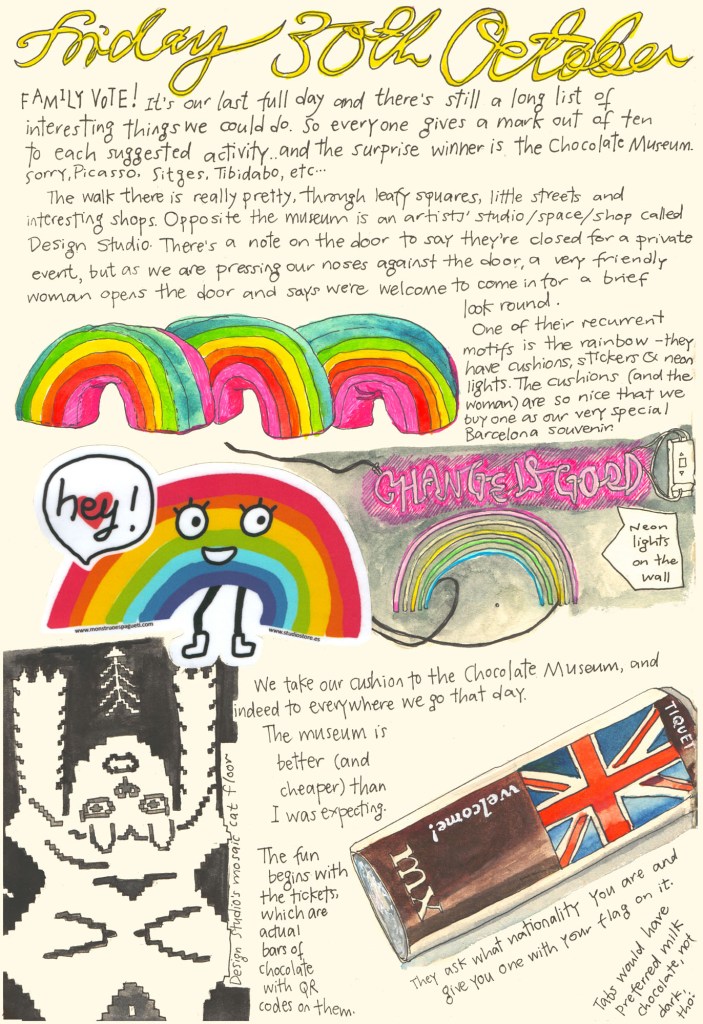 Friday 30th October
FAMILY VOTE! It's our last full day and there's still a long list of
interesting things we could do. So everyone gives a mark out of ten
to each suggested activity.. and the surprise winner is the Chocolate Museum.
Sorry, Picasso, Sitges, Tibidabo, etc...
The walk there is really pretty, through leafy squares, little streets and
interesting shops. Opposite the museum is an artists' studio/space/shop called
Design Studio. There's a note on the door to say they're closed for a private
event, but as we are pressing our noses against the door, a very friendly
woman opens the door and says we're welcome to come in for a brief
look round.
One of their recurrent
motifs is the rainbow - they
have cushions, stickers & neon
lights. The cushions (and the
woman) are so nice that we
buy one as our very special
Barcelona souvenir.
CHANGE IS GOOD
Neon
lights
on the
wall
hey!
www.monstruosespagueti.com
www.studiostore.es
We take our cushion to the Chocolate Museum, and
indeed to everywhere we go that day.
The museum is
better (and
cheaper) than
I was expecting.
Design Studio's mosaic cat floor
The fun
begins with
the tickets,
which are
actual
bars of
chocolate
with QR
codes on them.
TIQUET
welcome!
mx
They ask what nationality you are and
give you one with your flag on it.
Tabs would have
preferred milk
chocolate, not
dark,
tho'